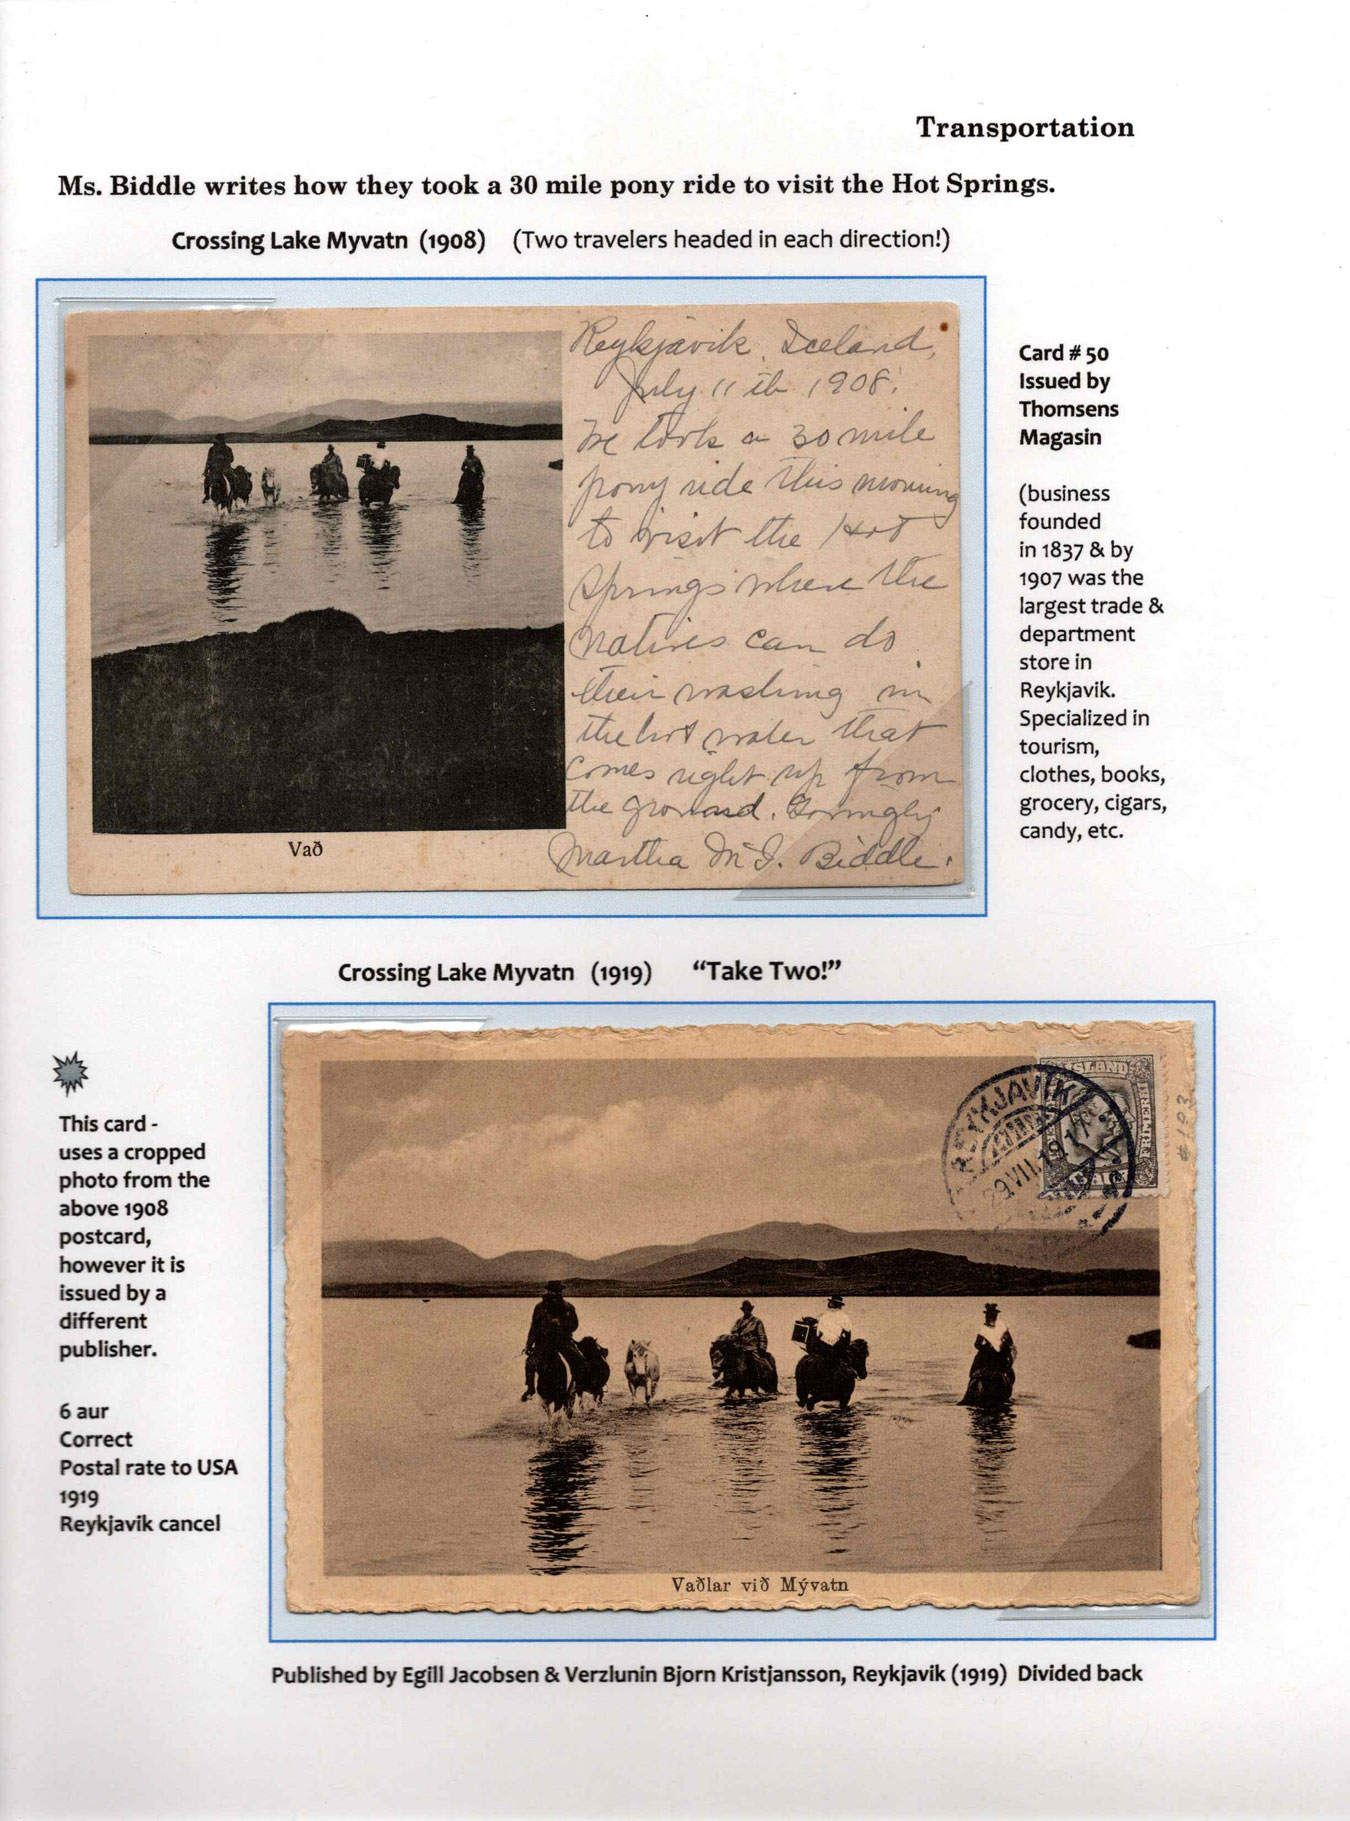 Transportation
Ms. Biddle writes how they took a 30 mile pony ride to visit the Hot Springs.
Crossing Lake Myvatn (1908) (Two travelers headed in each direction!)
Reykjavik, Iceland,
July 11th 1908.
We took a 30 mile
pony ride this morning
to visit the Hot
Springs where the
natives can do
their washing in
the hot water that
comes right up from
the ground. Lovingly
Martha McI. Biddle.
Vað
Card # 50
Issued by
Thomsens
Magasin
(business
founded
in 1837 & by
1907 was the
largest trade &
department
store in
Reykjavik.
Specialized in
tourism,
clothes, books,
grocery, cigars,
candy, etc.
Crossing Lake Myvatn (1919) “Take Two!”
This card -
uses a cropped
photo from the
above 1908
postcard,
however it is
issued by a
different
publisher.
6 aur
Correct
Postal rate to USA
1919
Reykjavik cancel
REYKJAVIK
29.VII.19.
ISLAND
#103
Vaðlar við Mývatn
Published by Egill Jacobsen & Verzlunin Bjorn Kristjansson, Reykjavik (1919) Divided back